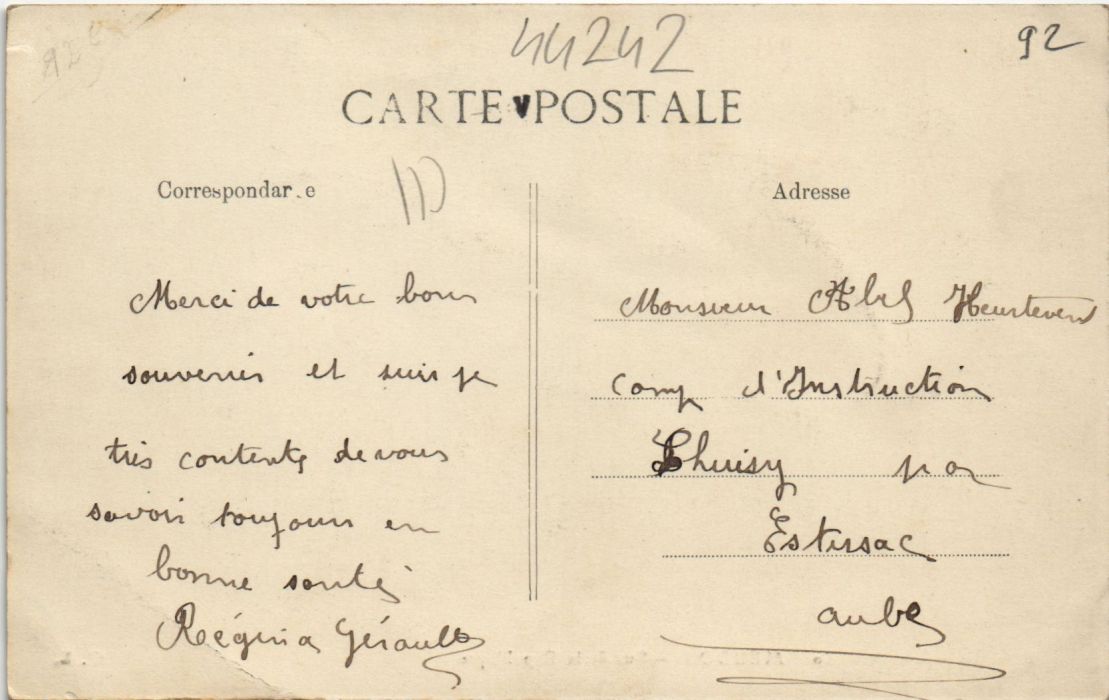 44242
92
CARTE POSTALE
Correspondance
Merci de votre bons
souvenir et suis je
très contente de vous
savoir toujours en
bonne santé
Régina Gérault
Adresse
Monsieur Abel Heurtevent
Camp d'Instruction
Thuisy par
Estissac
aube